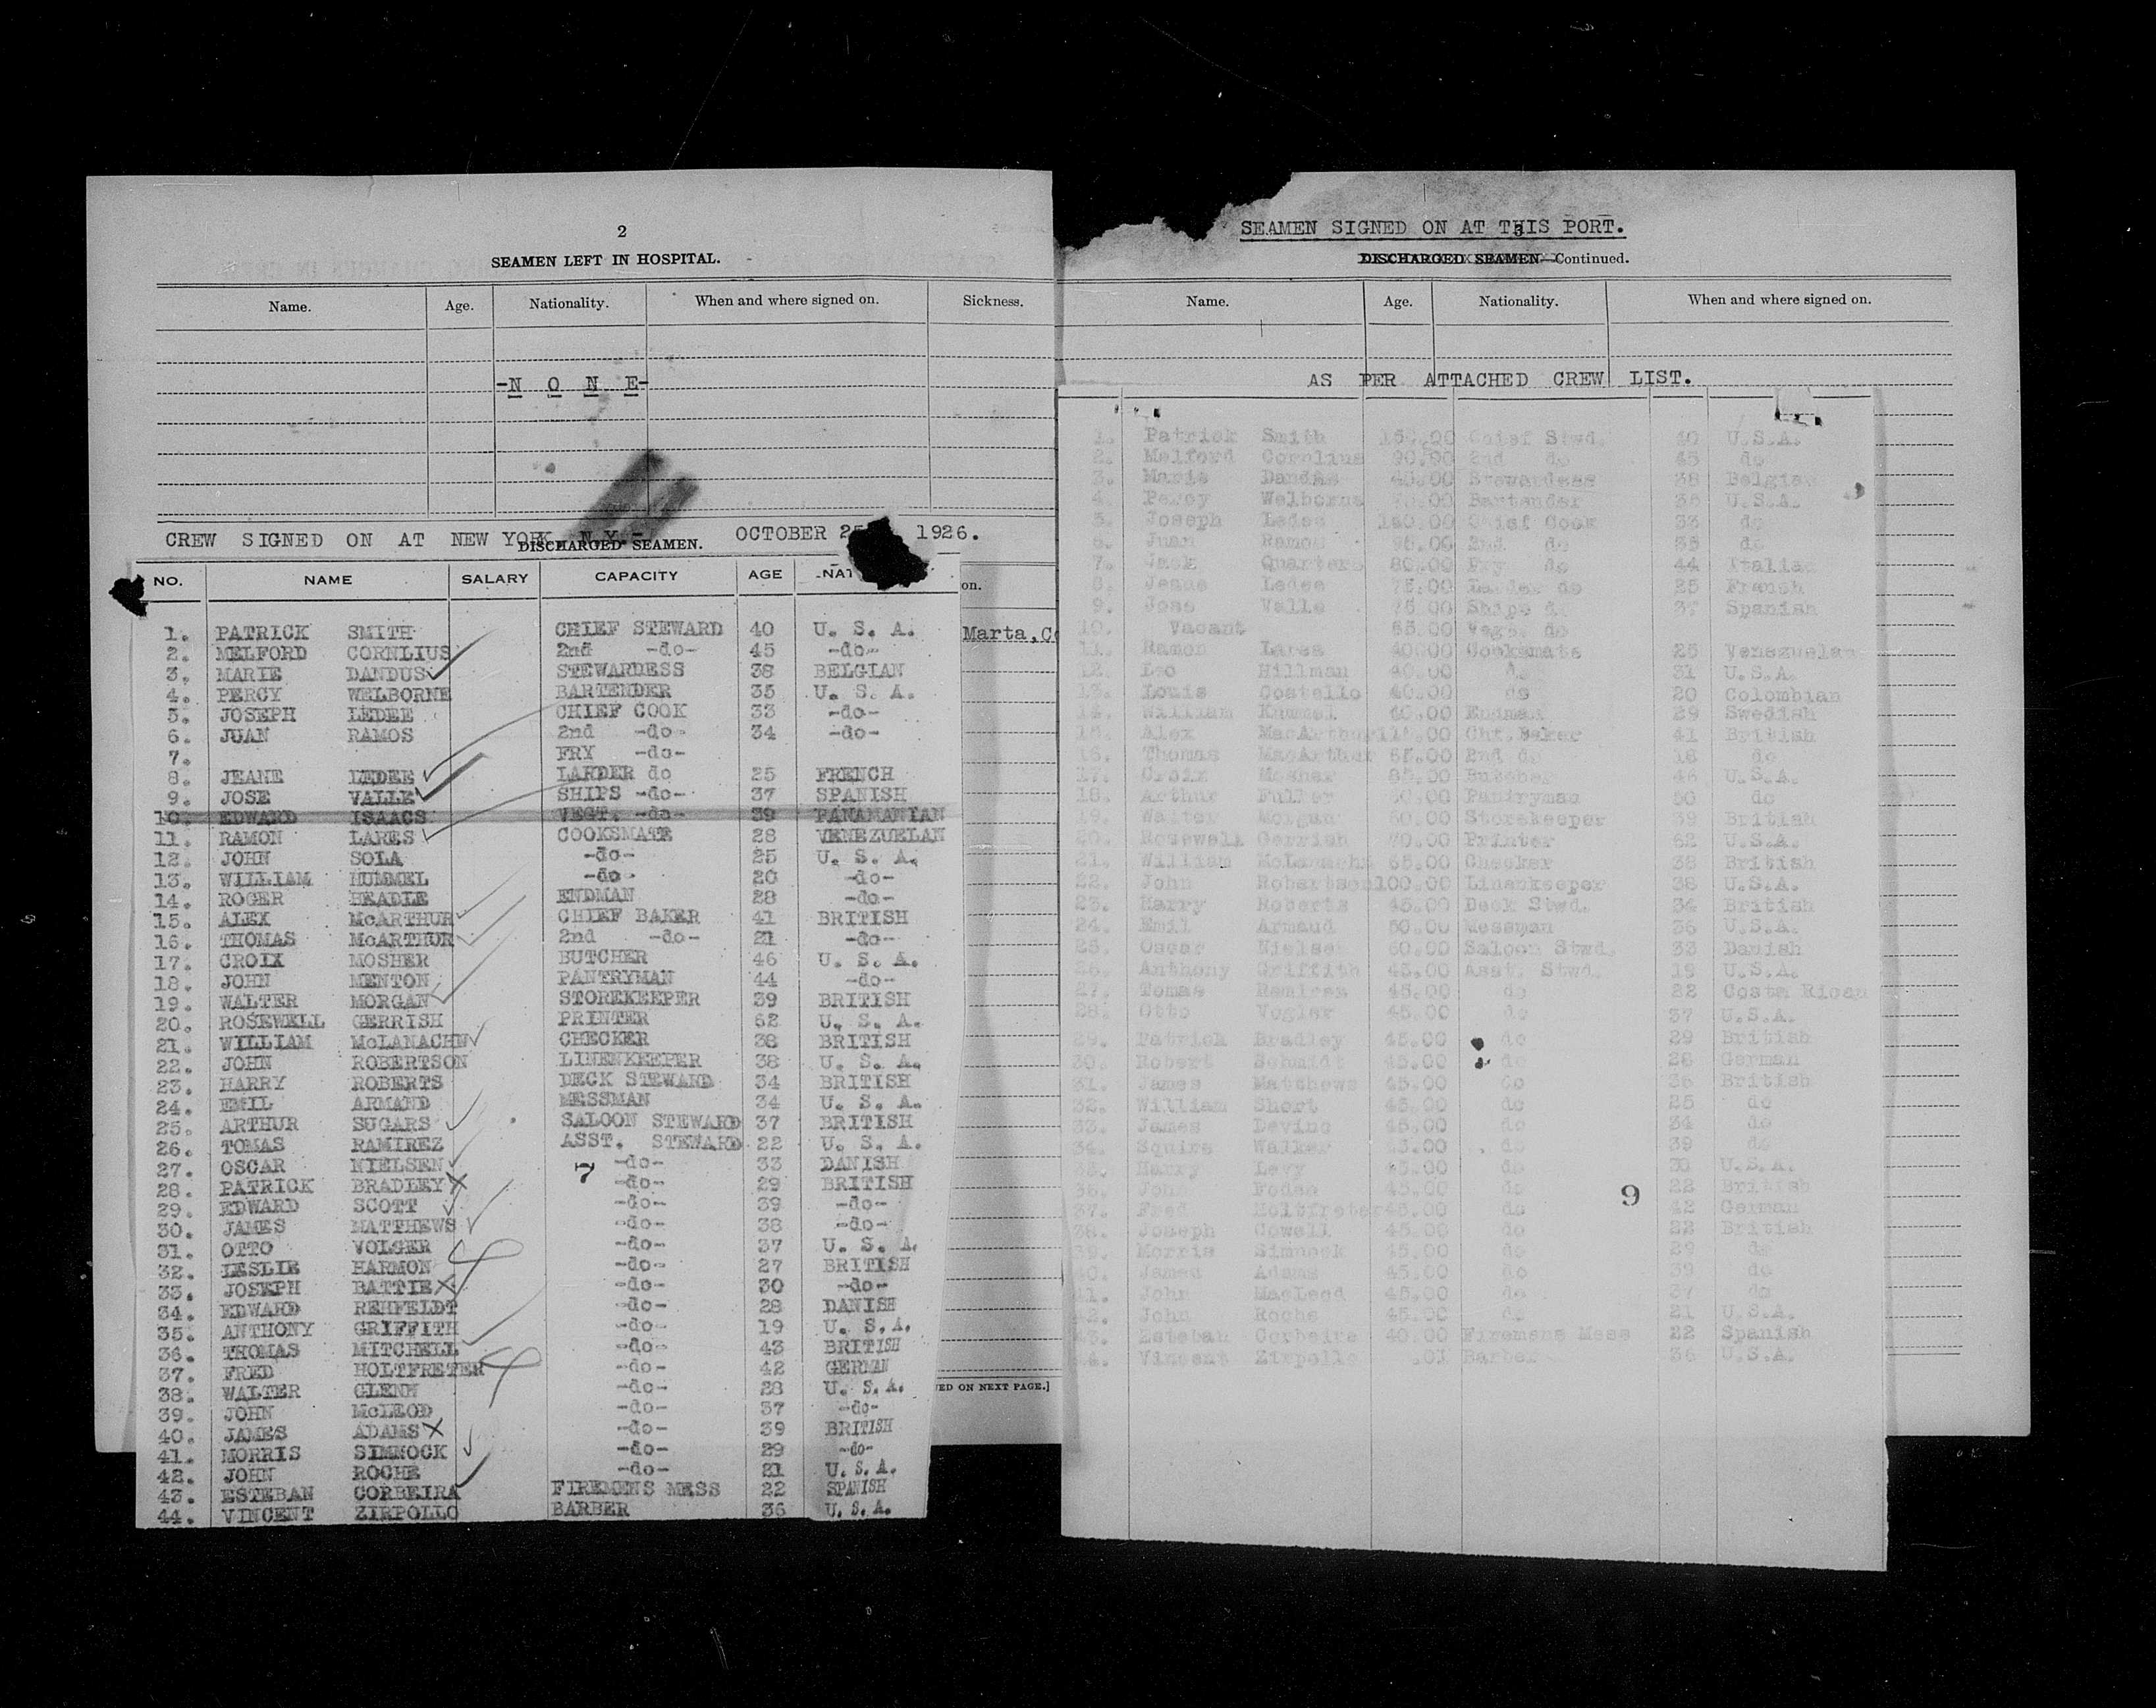 2
SEAMEN LEFT IN HOSPITAL.
Name. Age. Nationality. When and where signed on. Sickness.
-N O N E-
CREW SIGNED ON AT NEW YORK, N.Y.- OCTOBER 1926.
DISCHARGED SEAMEN.
NO. NAME SALARY CAPACITY AGE NAT
on.
1. PATRICK SMITH CHIEF STEWARD 40 U. S. A.
Marta, Co
2. MELFORD CORNLIUS 2nd -do- 45 -do-
3. MARIE DANDUS STEWARDESS 38 BELGIAN
4. PERCY WELBORNE BARTENDER 35 U. S. A.
5. JOSEPH LEDEE CHIEF COOK 33 -do-
6. JUAN RAMOS 2nd -do- 34 -do-
7. FRY -do-
8. JEANE LEDEE LARDER do 25 FRENCH
9. JOSE VALLE SHIPS -do- 37 SPANISH
10. EDWARD ISAACS VEGT. -do- 39 PANAMANIAN
11. RAMON LARES COOKSMATE 28 VENEZUELAN
12. JOHN SOLA -do- 25 U. S. A.
13. WILLIAM HUMMEL -do- 20 -do-
14. ROGER BEADLE ENDMAN 28 -do-
15. ALEX McARTHUR CHIEF BAKER 41 BRITISH
16. THOMAS McARTHUR 2nd -do- 21 -do-
17. CROIX MOSHER BUTCHER 46 U. S. A.
18. JOHN MENTON PANTRYMAN 44 -do-
19. WALTER MORGAN STOREKEEPER 39 BRITISH
20. ROSEWELL GERRISH PRINTER 62 U. S. A.
21. WILLIAM McLANACHN CHECKER 38 BRITISH
22. JOHN ROBERTSON LINENKEEPER 38 U. S. A.
23. HARRY ROBERTS DECK STEWARD 34 BRITISH
24. EMIL ARMAND MESSMAN 34 U. S. A.
25. ARTHUR SUGARS SALOON STEWARD 37 BRITISH
26. TOMAS RAMIREZ ASST. STEWARD 22 U. S. A.
27. OSCAR NIELSEN 7 -do- 33 DANISH
28. PATRICK BRADLEY -do- 29 BRITISH
29. EDWARD SCOTT -do- 39 -do-
30. JAMES MATTHEWS -do- 38 -do-
31. OTTO VOLGER -do- 37 U. S. A.
32. LESLIE HARMON -do- 27 BRITISH
33. JOSEPH BATTIE -do- 30 -do-
34. EDWARD REHFELDT -do- 28 DANISH
35. ANTHONY GRIFFITH -do- 19 U. S. A.
36. THOMAS MITCHELL -do- 43 BRITISH
37. FRED HOLTFRETER -do- 42 GERMAN
38. WALTER GLENN -do- 28 U. S. A.
39. JOHN McLEOD -do- 37 -do-
40. JAMES ADAMS -do- 39 BRITISH
41. MORRIS SIMNOCK -do- 29 -do-
42. JOHN ROCHE -do- 21 U. S. A.
43. ESTEBAN CORBEIRA FIREMENS MESS 22 SPANISH
44. VINCENT ZIRPOLLO BARBER 36 U. S. A.
ED ON NEXT PAGE.]
SEAMEN SIGNED ON AT THIS PORT.
3
DISCHARGED SEAMEN—Continued.
Name. Age. Nationality. When and where signed on.
AS PER ATTACHED CREW LIST.
1. Patrick Smith Chief Stwd. 40 U.S.A.
2. Melford Cornlius 90.00 2nd do 45 do
3. Marie Dandus 40.00 Stewardess 38
4. Percy Welborne Bartender 35 U.S.A.
5. Joseph Ledee Chief Cook 33 do
6. Juan Ramos 2nd do 35 do
7. Jack Quarters 80.00 Fry do 44
8. Jeane Ledee 75.00 Larder do 25 French
9. Jose Valle 75.00 Ships 37 Spanish
10. Vacant 65.00 Vegt. do
11. Ramon Lares 40.00 Cooksmate 25 Venezuelan
12. Leo Hillman 40.00 do 31 U.S.A.
13. Louis Costello 40.00 do 20 Colombian
14. William Endman 29 Swedish
15. Alex MacArthur Baker 41 British
16. Thomas MacArthur 2nd do 18 do
17. Croix Mosher 85.00 Butcher 46 U.S.A.
18. Arthur Fuller Pantryman 50 do
19. Walter Morgan Storekeeper 39 British
20. Rosewell Gerrish 70.00 Printer 62 U.S.A.
21. William 65.00 Checker 38 British
22. John Robertson 100.00 Linenkeeper 38 U.S.A.
23. Harry Roberts 45.00 Deck Stwd. 34 British
24. Emil Armaud 50.00 Messman 36 U.S.A.
25. Oscar Nielsen 60.00 Saloon Stwd. 33 Danish
26. Anthony Griffith 45.00 Asst. Stwd. 19 U.S.A.
27. Tomas Ramirez 45.00 do 22 Costa Rican
28. Otto Vogler 45.00 do 37 U.S.A.
29. Patrick Bradley 45.00 do 29 British
30. Robert Schmidt 45.00 do 26 German
31. James Matthews 45.00 do 36 British
32. William Short 45.00 do 25 do
33. James Devine 45.00 do 34 do
34. Squire Walker 45.00 do 39 do
35. Harry Levy 45.00 do U.S.A.
36. John Foden 45.00 do 22 British
9
37. Fred Holtfreter 45.00 do 42 German
38. Joseph Cowell 45.00 do 22 British
39. Morris Simnock 45.00 do 29 do
40. James Adams 45.00 do 39 do
41. John MacLeod 45.00 do 37 do
42. John Roche 45.00 do 21 U.S.A.
43. Esteban Corbeira 40.00 Firemens Mess 22 Spanish
44. Vincent Zirpollo .01 Barber 36 U.S.A.